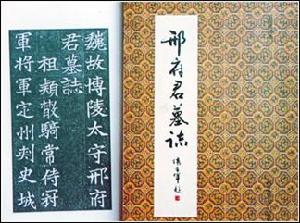 魏故博陵太守邢府
君墓誌
祖頴散騎常侍冠
軍將軍定州刾史城
邢府君墓誌